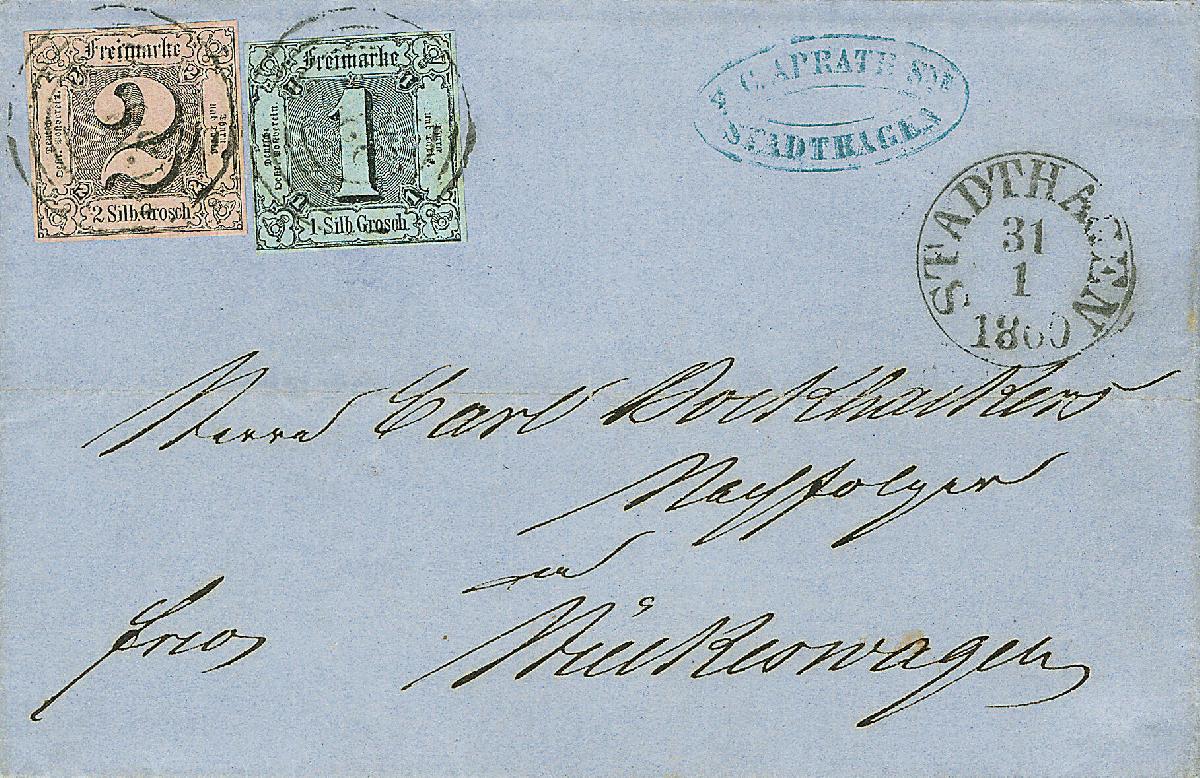 Freimarke
2
2 Silb. Grosch.
Freimarke
1
1 Silb. Grosch.
C. APRATH
STADTHAGEN
STADTHAGEN
31
1
1860
Herrn Carl
Nachfolger
in
frco